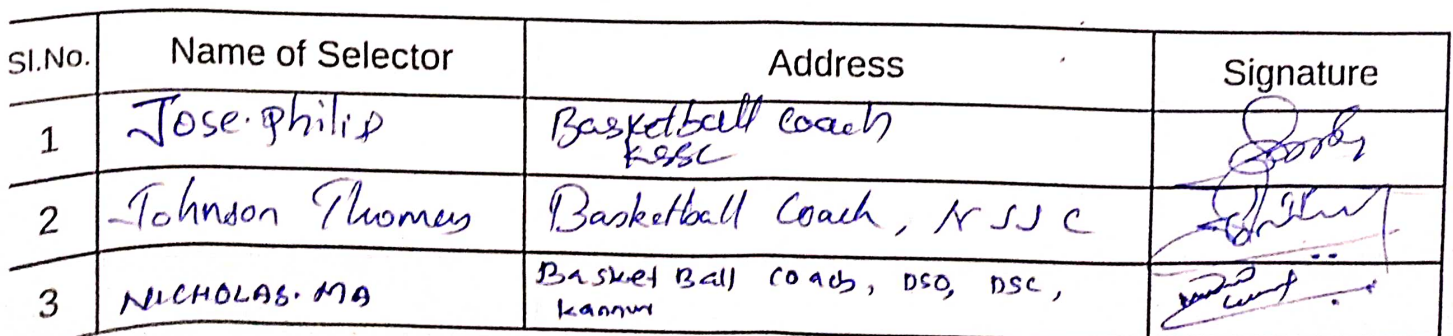 Sl.No. Name of Selector Address Signature
1 Jose.philip Basketball coach
KSSC
2 Johnson Thomas Basketball Coach, NSSC
3 NICHOLAS.MA Basket Ball coach, DSO, DSC,
kannur